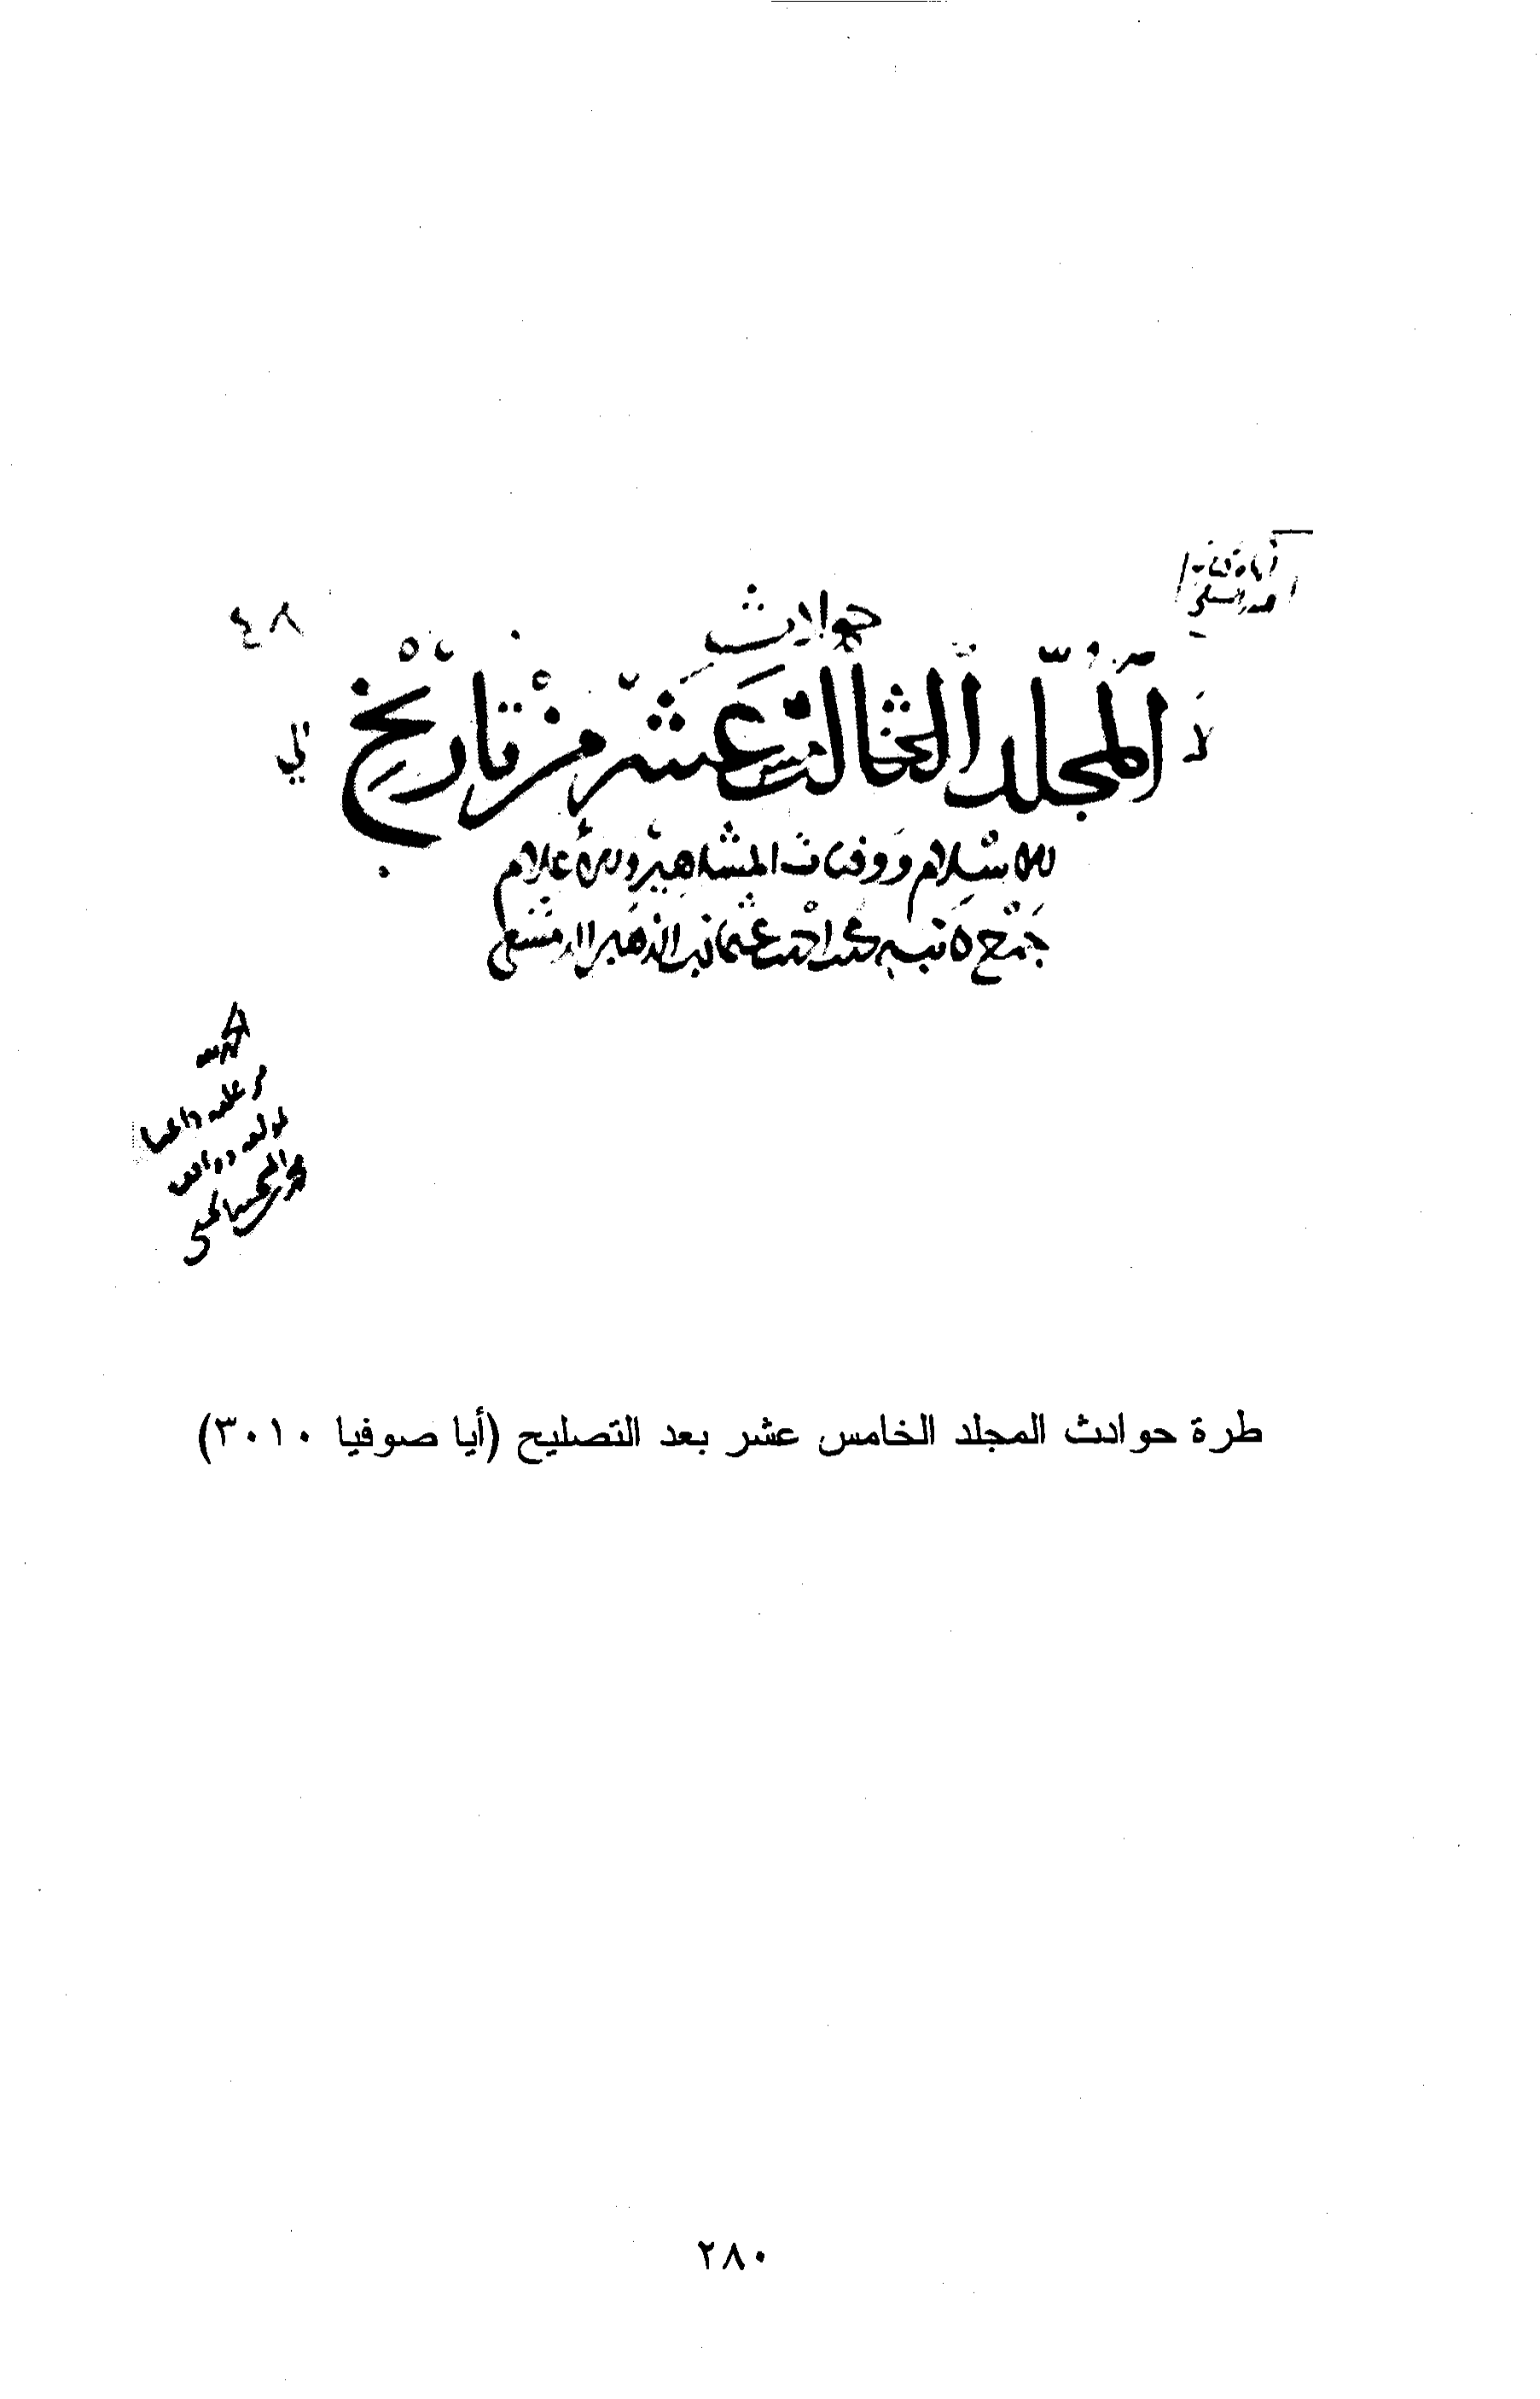 ٤٨
حوادث
المجلد الخامس عشر من تاريخ
الاسلام ووفيات المشاهير والاعلام
جمع كاتبه محمد بن احمد بن عثمان بن الذهبي الدمشقي
طرة حوادث المجلد الخامس عشر بعد التصليح (أيا صوفيا ٣٠١٠)
٢٨٠